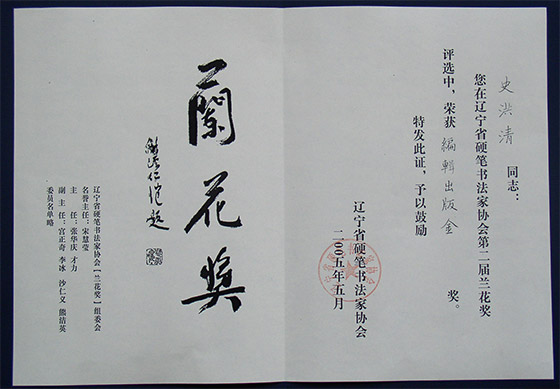 史洪清 同志：
您在辽宁省硬笔书法家协会第二届兰花奖
评选中，荣获 编辑出版金 奖。
特发此证，予以鼓励
辽宁省硬笔书法家协会
二00五年五月
蘭花奖
辽宁省硬笔书法家协会【兰花奖】组委会
名誉主任：宋慧莹
主 任：张华庆 才力
副 主 任：宫正奇 李冰 沙仁义 熊洁英
委员名单略